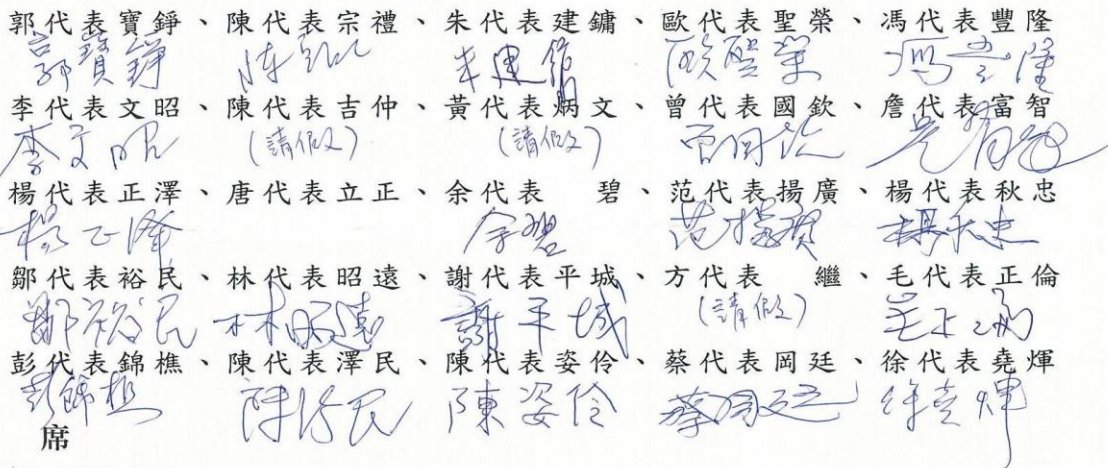 郭代表寶錚、陳代表宗禮、朱代表建鏞、歐代表聖榮、馮代表豐隆
郭寶錚 朱建鏞 歐聖榮
李代表文昭、陳代表吉仲、黃代表炳文、曾代表國欽、詹代表富智
李文昭 (請假) (請假) 曾国欽
楊代表正澤、唐代表立正、余代表　碧、范代表揚廣、楊代表秋忠
楊正澤 余碧 范揚廣 楊秋忠
鄒代表裕民、林代表昭遠、謝代表平城、方代表　繼、毛代表正倫
鄒裕民 林昭遠 謝平城 (請假)
彭代表錦樵、陳代表澤民、陳代表姿伶、蔡代表岡廷、徐代表堯煇
彭錦樵 陳澤民 陳姿伶 蔡岡廷 徐堯煇
席